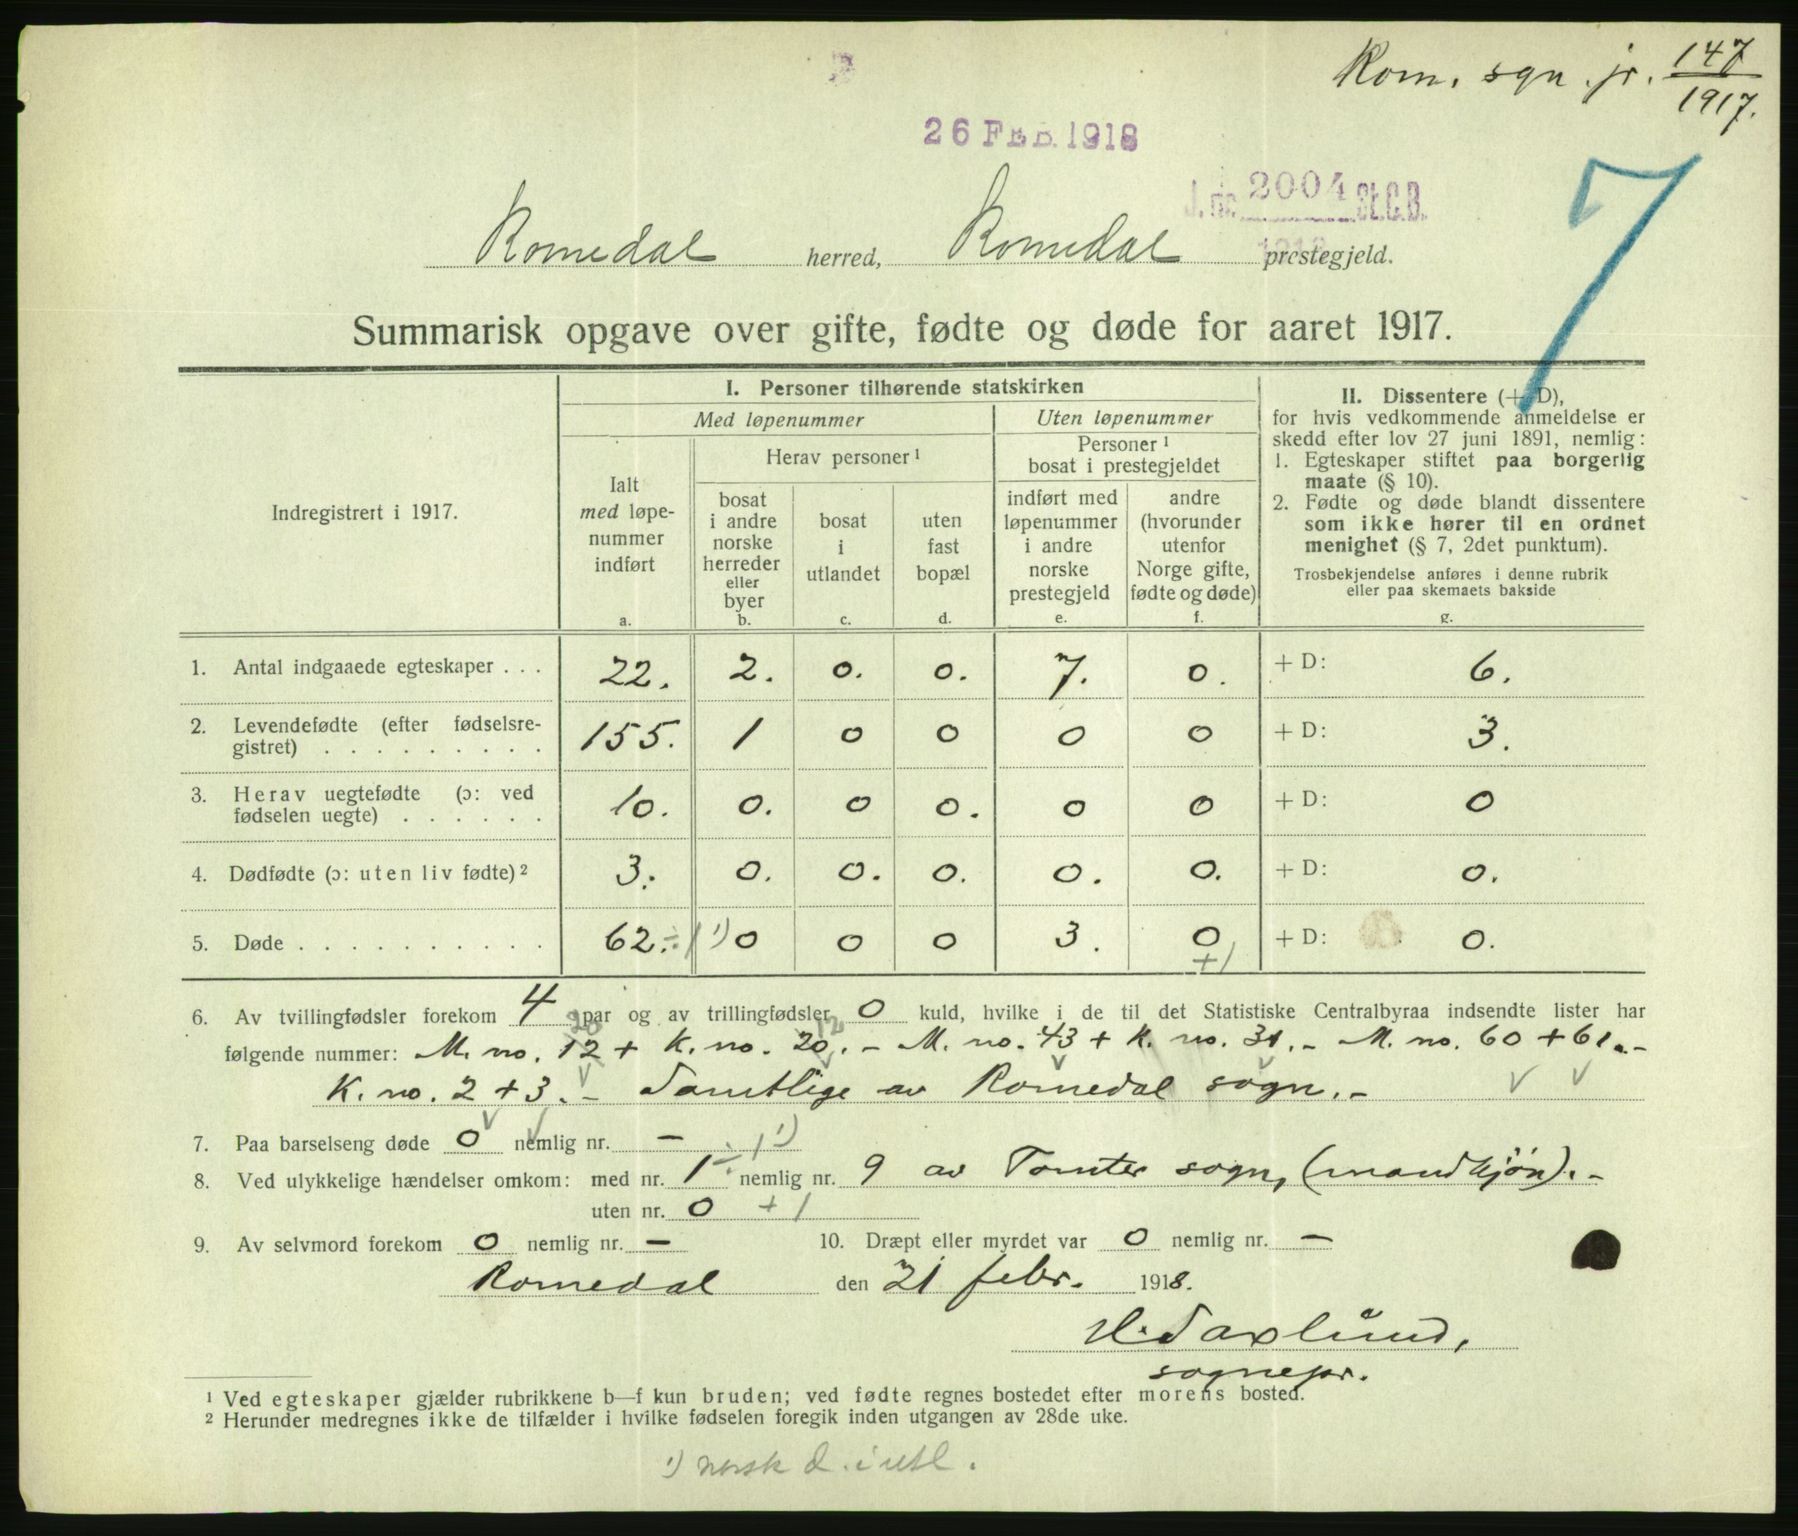 Rom. sgn. jr. 147/1917.
26 FEB. 1918
J. nr. 2004 St.C.B.
Romedal herred, Romedal prestegjeld.
7
Summarisk opgave over gifte, fødte og døde for aaret 1917.
Indregistrert i 1917.
I. Personer tilhørende statskirken
Med løpenummer
Uten løpenummer
Ialt med løpenummer indført a.
Herav personer¹
bosat i andre norske herreder eller byer b.
bosat i utlandet c.
uten fast bopæl d.
Personer¹ bosat i prestegjeldet
indført med løpenummer i andre norske prestegjeld e.
andre (hvorunder utenfor Norge gifte, fødte og døde) f.
II. Dissentere (+ D),
for hvis vedkommende anmeldelse er
skedd efter lov 27 juni 1891, nemlig:
1. Egteskaper stiftet paa borgerlig
maate (§ 10).
2. Fødte og døde blandt dissentere
som ikke hører til en ordnet
menighet (§ 7, 2det punktum).
Trosbekjendelse anføres i denne rubrik
eller paa skemaets bakside
g.
1. Antal indgaaede egteskaper . . . 22. 2. 0. 0. 7. 0. + D: 6.
2. Levendefødte (efter fødselsre-
gistret) . . . . . . . . . 155. 1 0 0 0 0 + D: 3.
3. Herav uegtefødte (ɔ: ved
fødselen uegte) . . . . . . 10. 0. 0 0. 0 0 + D: 0
4. Dødfødte (ɔ: uten liv fødte)² 3. 0. 0. 0. 0. 0. + D: 0.
5. Døde . . . . . . . . . . 62. ÷1 ¹) 0 0 0 3. 0 +1 + D: 0.
6. Av tvillingfødsler forekom 4 par og av trillingfødsler 0 kuld, hvilke i de til det Statistiske Centralbyraa indsendte lister har
20 12
følgende nummer: M. no. 12 + K. no. 20. - M. no. 43 + K. no. 31. - M. no. 60 + 61. -
K. no. 2 + 3. - Samtlige av Romedal sogn. -
7. Paa barselseng døde 0 nemlig nr. —
÷1 ¹)
8. Ved ulykkelige hændelser omkom: med nr. 1 nemlig nr. 9 av Tomter sogn, (mandkjøn). -
uten nr. 0 +1
9. Av selvmord forekom 0 nemlig nr. — 10. Dræpt eller myrdet var 0 nemlig nr. —
Romedal den 21 febr. 1918.
H. Saxlund,
sognepr.
¹ Ved egteskaper gjælder rubrikkene b—f kun bruden; ved fødte regnes bostedet efter morens bosted.
² Herunder medregnes ikke de tilfælder i hvilke fødselen foregik inden utgangen av 28de uke.
¹) norsk d. i utl.